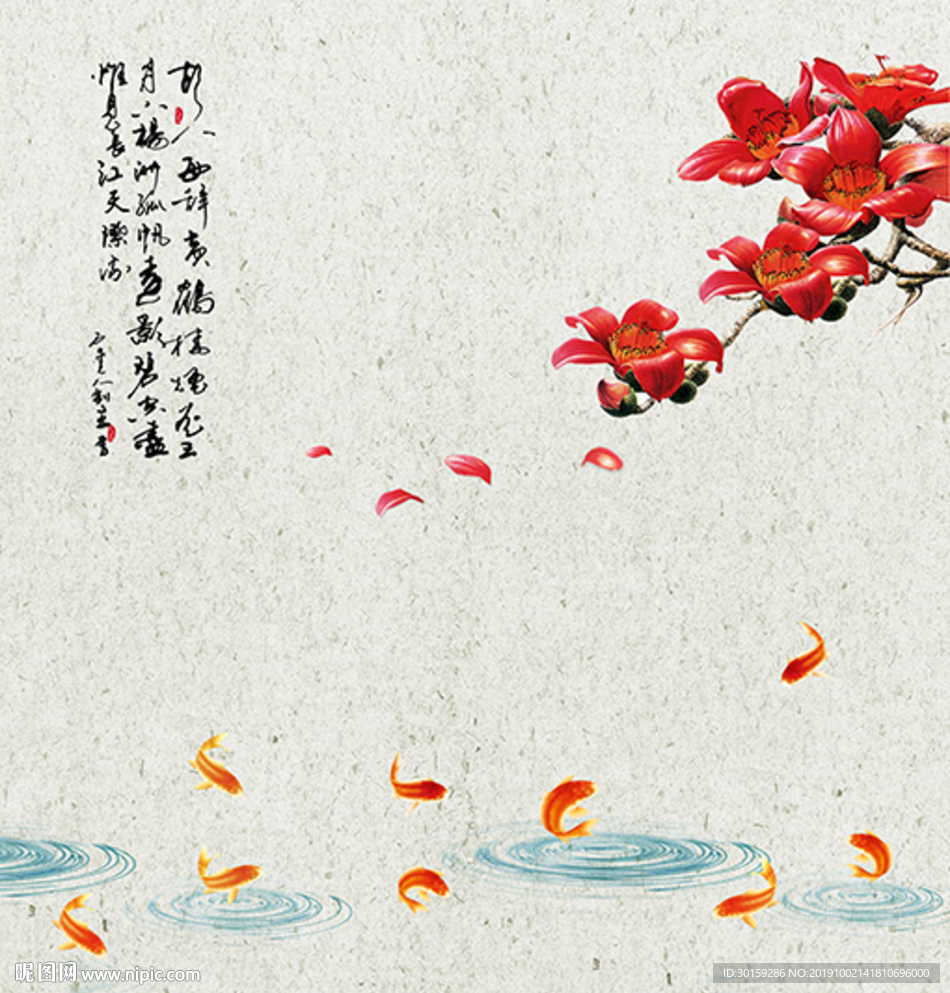 故人西辞黄鶴樓煙花三
月下楊州孤帆遠影碧空盡
惟見長江天際流
昵图网 www.nipic.com
ID:30159286 NO:20191002141810696000